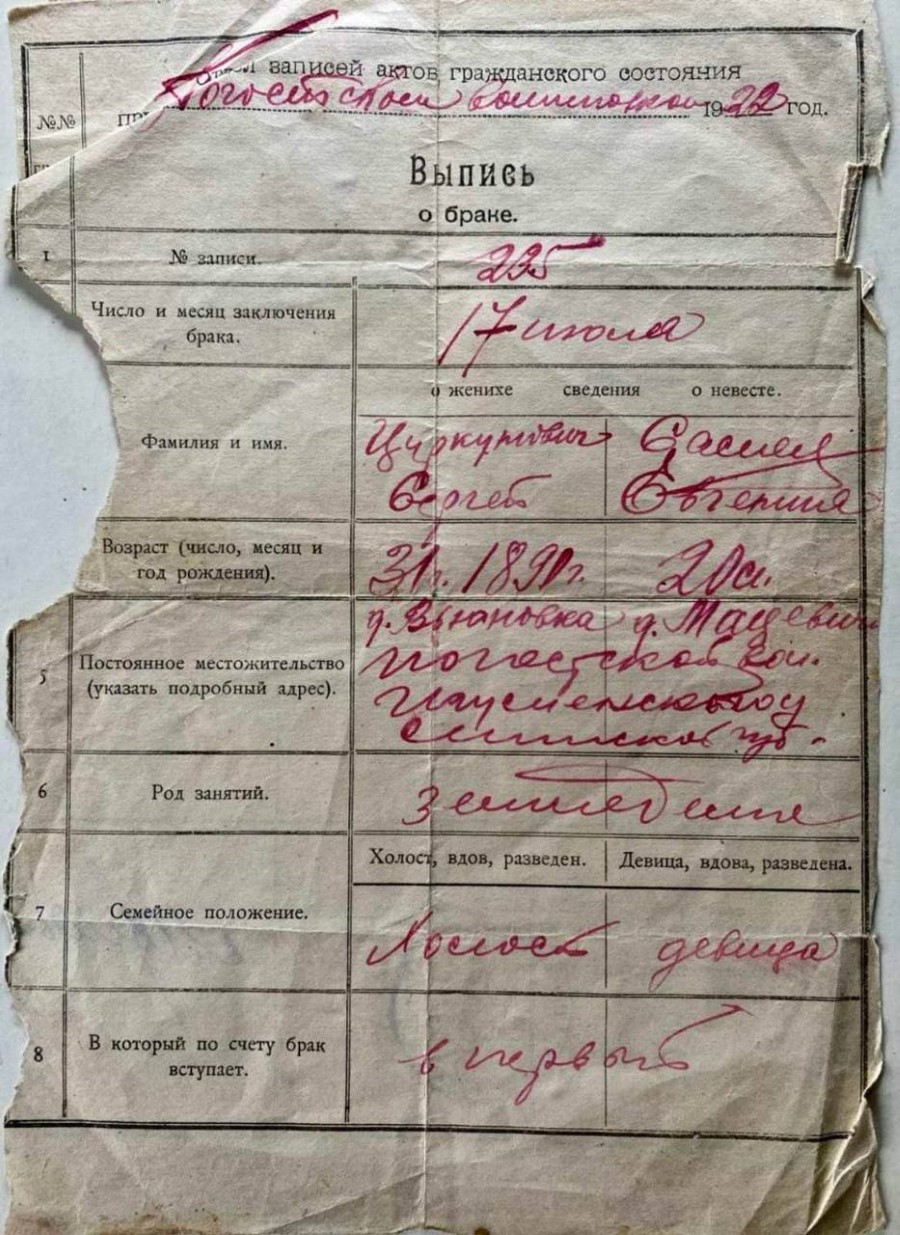 записей актов гражданского состояния
Погостском 1922 год.
№№
Выпись
о браке.
1 № записи. 225
Число и месяц заключения
брака.
17 июля
о женихе сведения о невесте.
Фамилия и имя.
Циркунович
Сергей Евгения
Возраст (число, месяц и
год рождения).
31 г. 1891 г. 20 л.
д. Вьюновка д. Мацевичи
5 Постоянное местожительство
(указать подробный адрес).
Погостской вол.
Игуменского у
Минской губ.
6 Род занятий. земледелие
Холост, вдов, разведен. Девица, вдова, разведена.
7 Семейное положение. Холост девица
8 В который по счету брак
вступает.
в первый